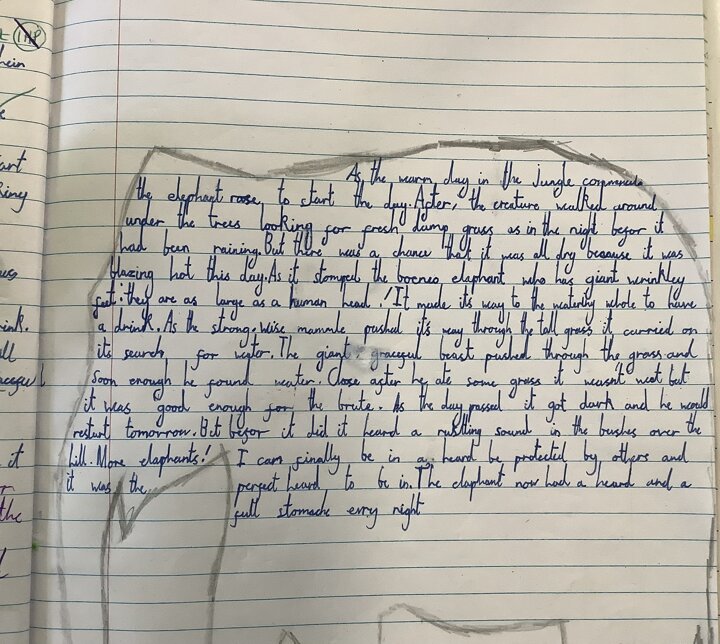 t INP
hein
e
art
Riny
us
ink.
all
aceful
it
r
the
d
As the warm day in the jungle commenced
the elephant rose, to start the day. After, the creature walked around
under the trees looking for fresh damp grass as in the night befor it
had been raining. But there was a chance that it was all dry because it was
blazing hot this day. As it stomped the boeneo elaphant who has giant wrinkley
feet: they are as large as a human head! It made it's way to the watering whole to have
a drink. As the strong, wise mammle pushed it's way through the tall grass it carried on
its search for water. The giant, graceful beast pushed through the grass and
soon enough he found water. Close after he ate some grass it wasn't wet but
it was good enough for the brute. As the day passed it got dark and he would
restart tomorrow. But befor it did it heard a rustling sound in the bushes over the
hill. More elaphants! I can finally be in a heard be protected by others and
it was the perfect heard to be in. The elaphant now had a heard and a
full stomache evry night